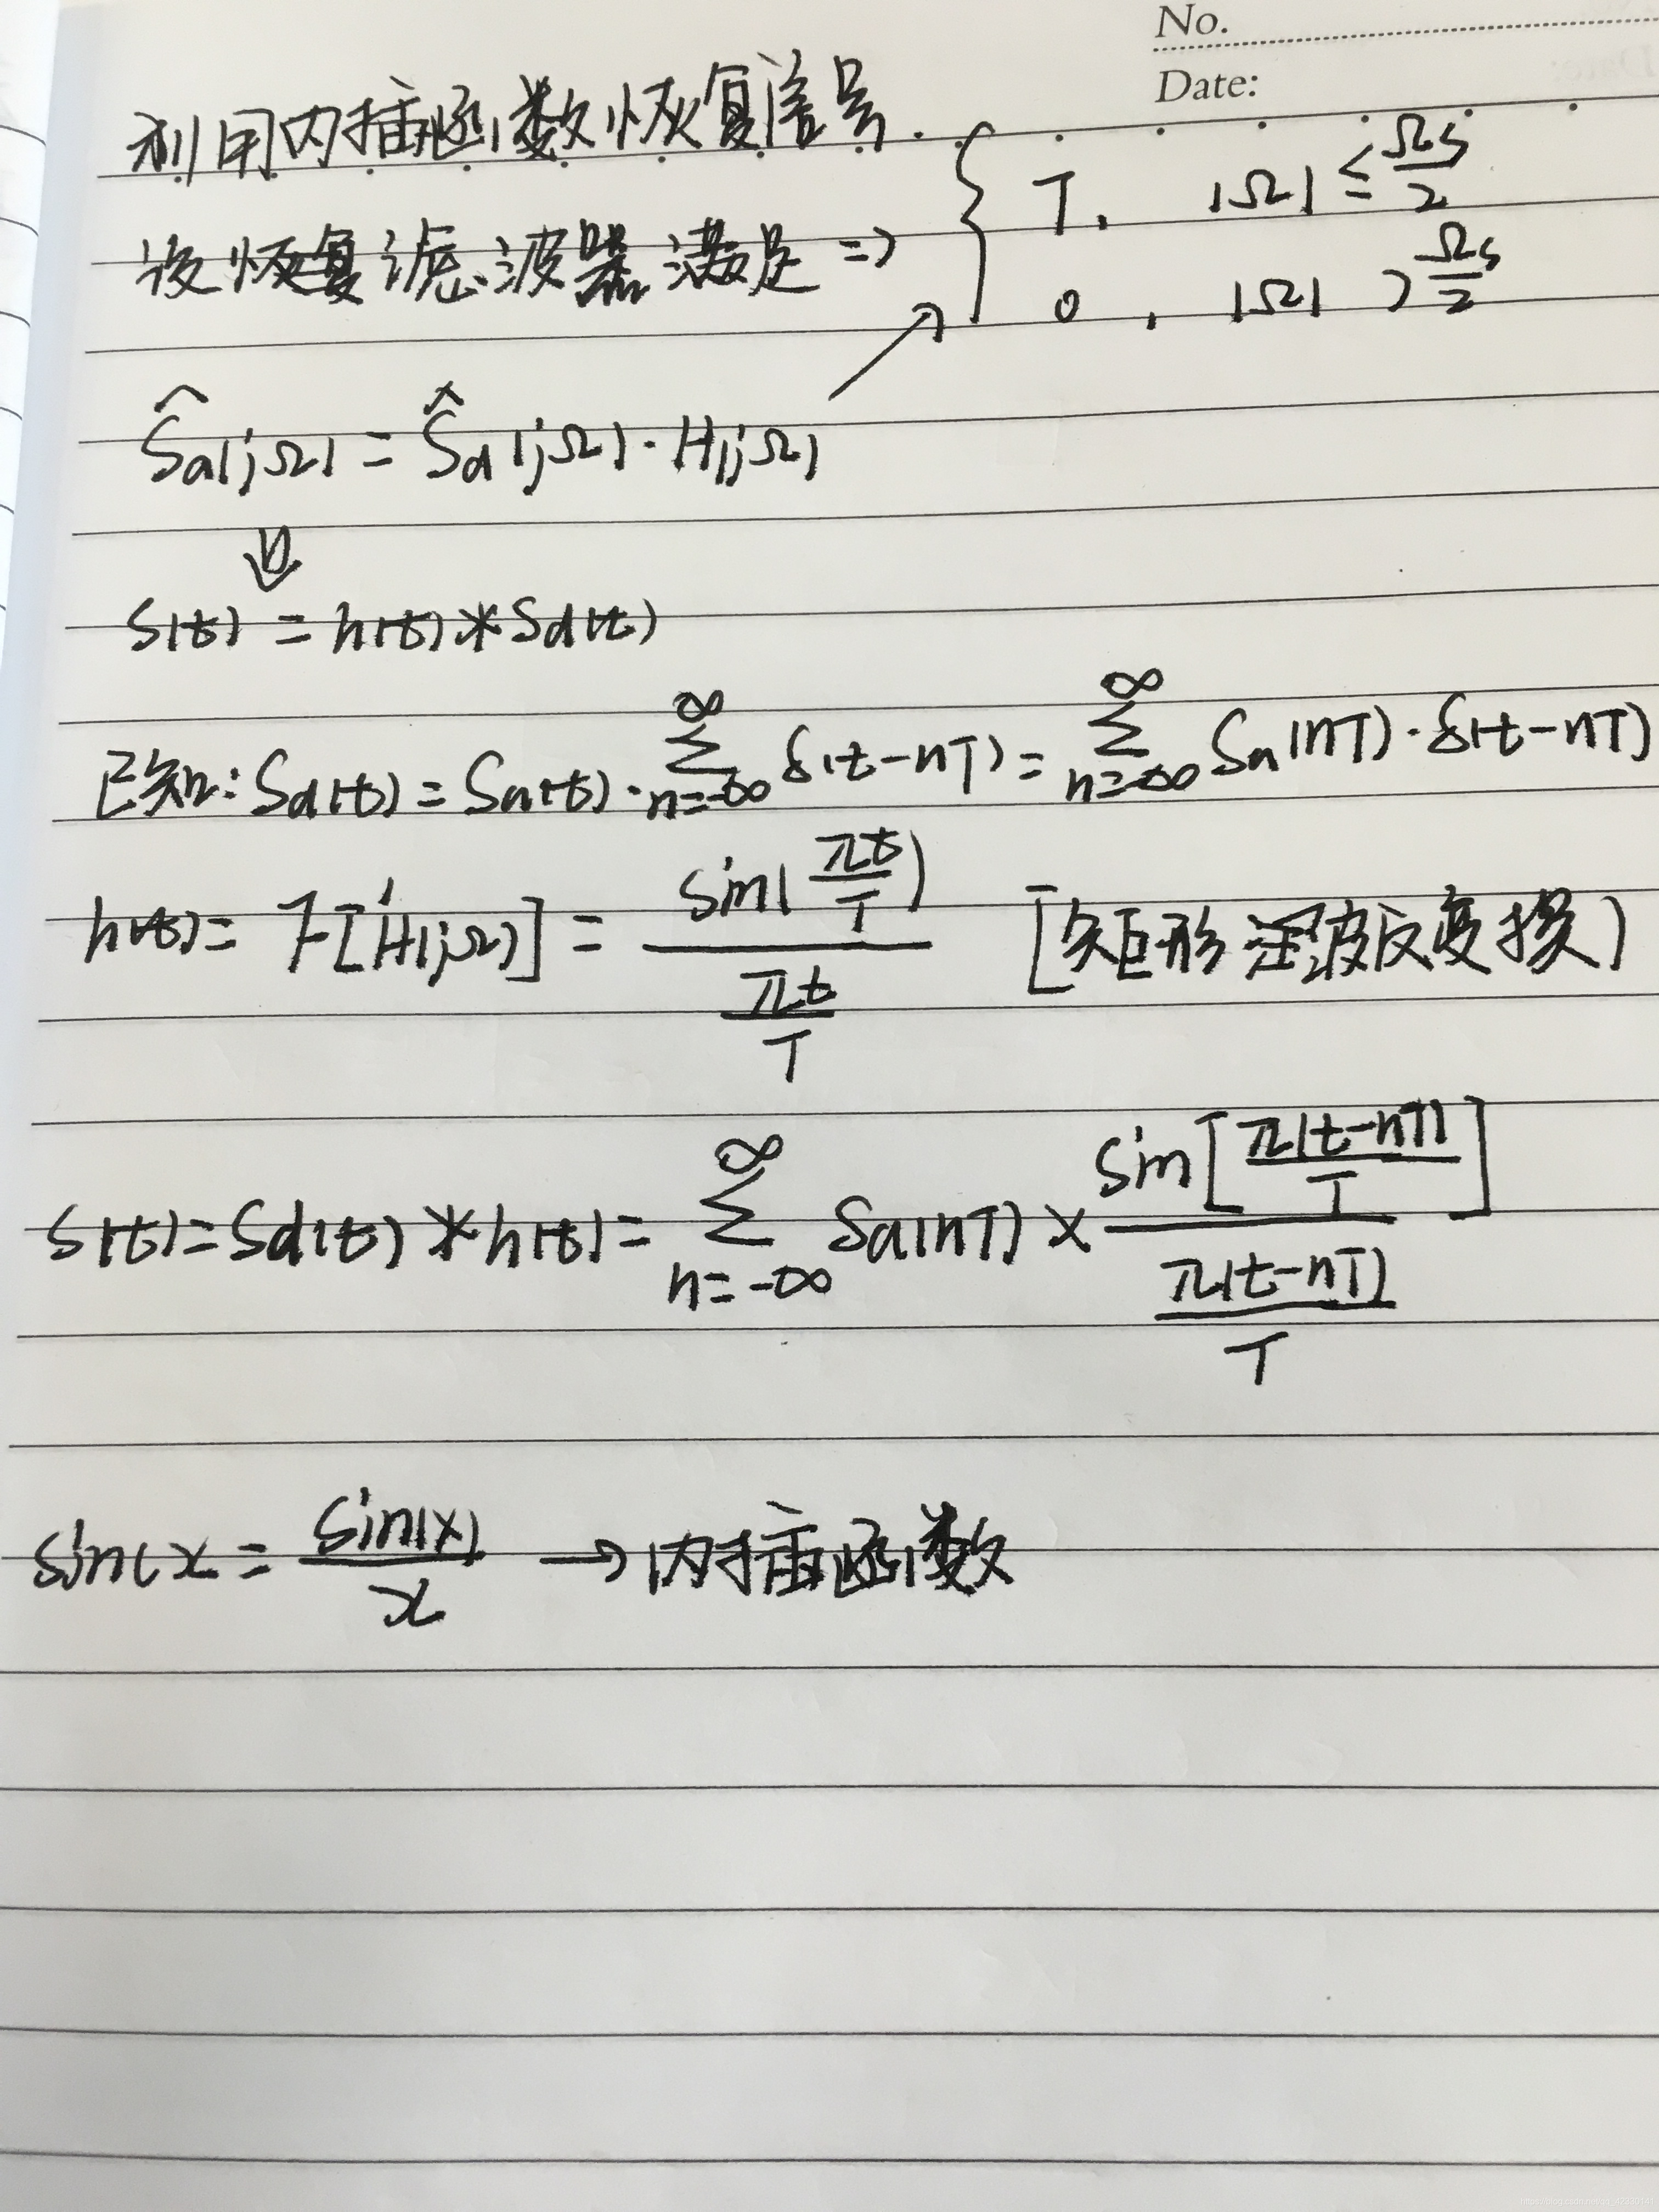 No.
Date:
利用内插函数恢复信号.
设恢复滤波器满足 => { T, |Ω| ≤ Ωs/2
0, |Ω| > Ωs/2
Ŝa(jΩ) = Ŝd(jΩ)·H(jΩ)
⇓
S(t) = h(t)*Sd(t)
已知: Sd(t) = Sa(t)·∑_{n=-∞}^{∞} δ(t-nT) = ∑_{n=-∞}^{∞} Sa(nT)·δ(t-nT)
h(t) = F⁻¹[H(jΩ)] = sin(πt/T) / (πt/T) [矩形滤波反变换]
S(t) = Sd(t) * h(t) = ∑_{n=-∞}^{∞} Sa(nT) × sin[π(t-nT)/T] / (π(t-nT)/T)
sinc x = sin(x)/x → 内插函数